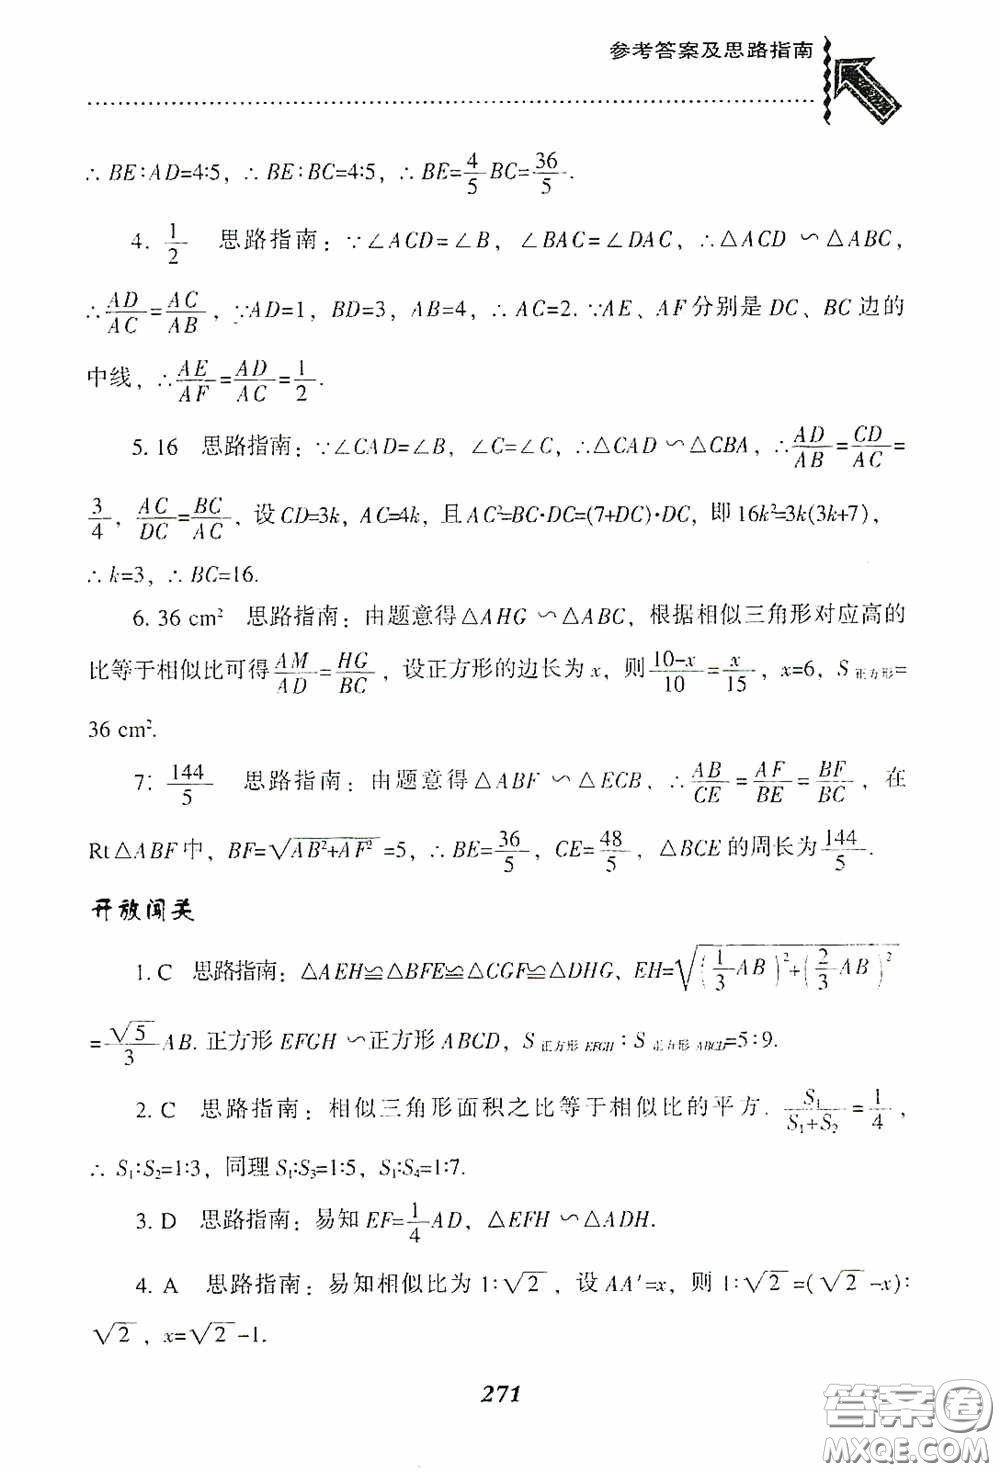 参考答案及思路指南
∴ BE∶AD=4∶5，∴ BE∶BC=4∶5，∴ BE=4/5 BC=36/5.
4. 1/2 思路指南：∵∠ACD=∠B，∠BAC=∠DAC，∴△ACD∽△ABC，
∴AD/AC=AC/AB，∵AD=1，BD=3，AB=4，∴ AC=2. ∵AE、AF分别是DC、BC边的
中线，∴AE/AF=AD/AC=1/2.
5. 16 思路指南：∵∠CAD=∠B，∠C=∠C，∴△CAD∽△CBA，∴AD/AB=CD/AC=
3/4，AC/DC=BC/AC，设CD=3k，AC=4k，且AC²=BC·DC=(7+DC)·DC，即16k²=3k(3k+7)，
∴ k=3，∴ BC=16.
6. 36 cm² 思路指南：由题意得△AHG∽△ABC，根据相似三角形对应高的
比等于相似比可得AM/AD=HG/BC，设正方形的边长为x，则(10-x)/10=x/15，x=6，S正方形=
36 cm².
7. 144/5 思路指南：由题意得△ABF∽△ECB，∴AB/CE=AF/BE=BF/BC，在
Rt△ABF中，BF=√(AB²+AF²)=5，∴ BE=36/5，CE=48/5，△BCE的周长为144/5.
开放闯关
1. C 思路指南：△AEH≌△BFE≌△CGF≌△DHG，EH=√((1/3 AB)²+(2/3 AB)²)
=√5/3 AB. 正方形EFGH∽正方形ABCD，S正方形EFGH∶S正方形ABCD=5∶9.
2. C 思路指南：相似三角形面积之比等于相似比的平方. S₁/(S₁+S₂)=1/4，
∴ S₁∶S₂=1∶3，同理S₁∶S₃=1∶5，S₁∶S₄=1∶7.
3. D 思路指南：易知EF=1/4 AD，△EFH∽△ADH.
4. A 思路指南：易知相似比为1∶√2，设AA′=x，则1∶√2=(√2-x)∶
√2，x=√2-1.
271
答案圈
MXQE.COM